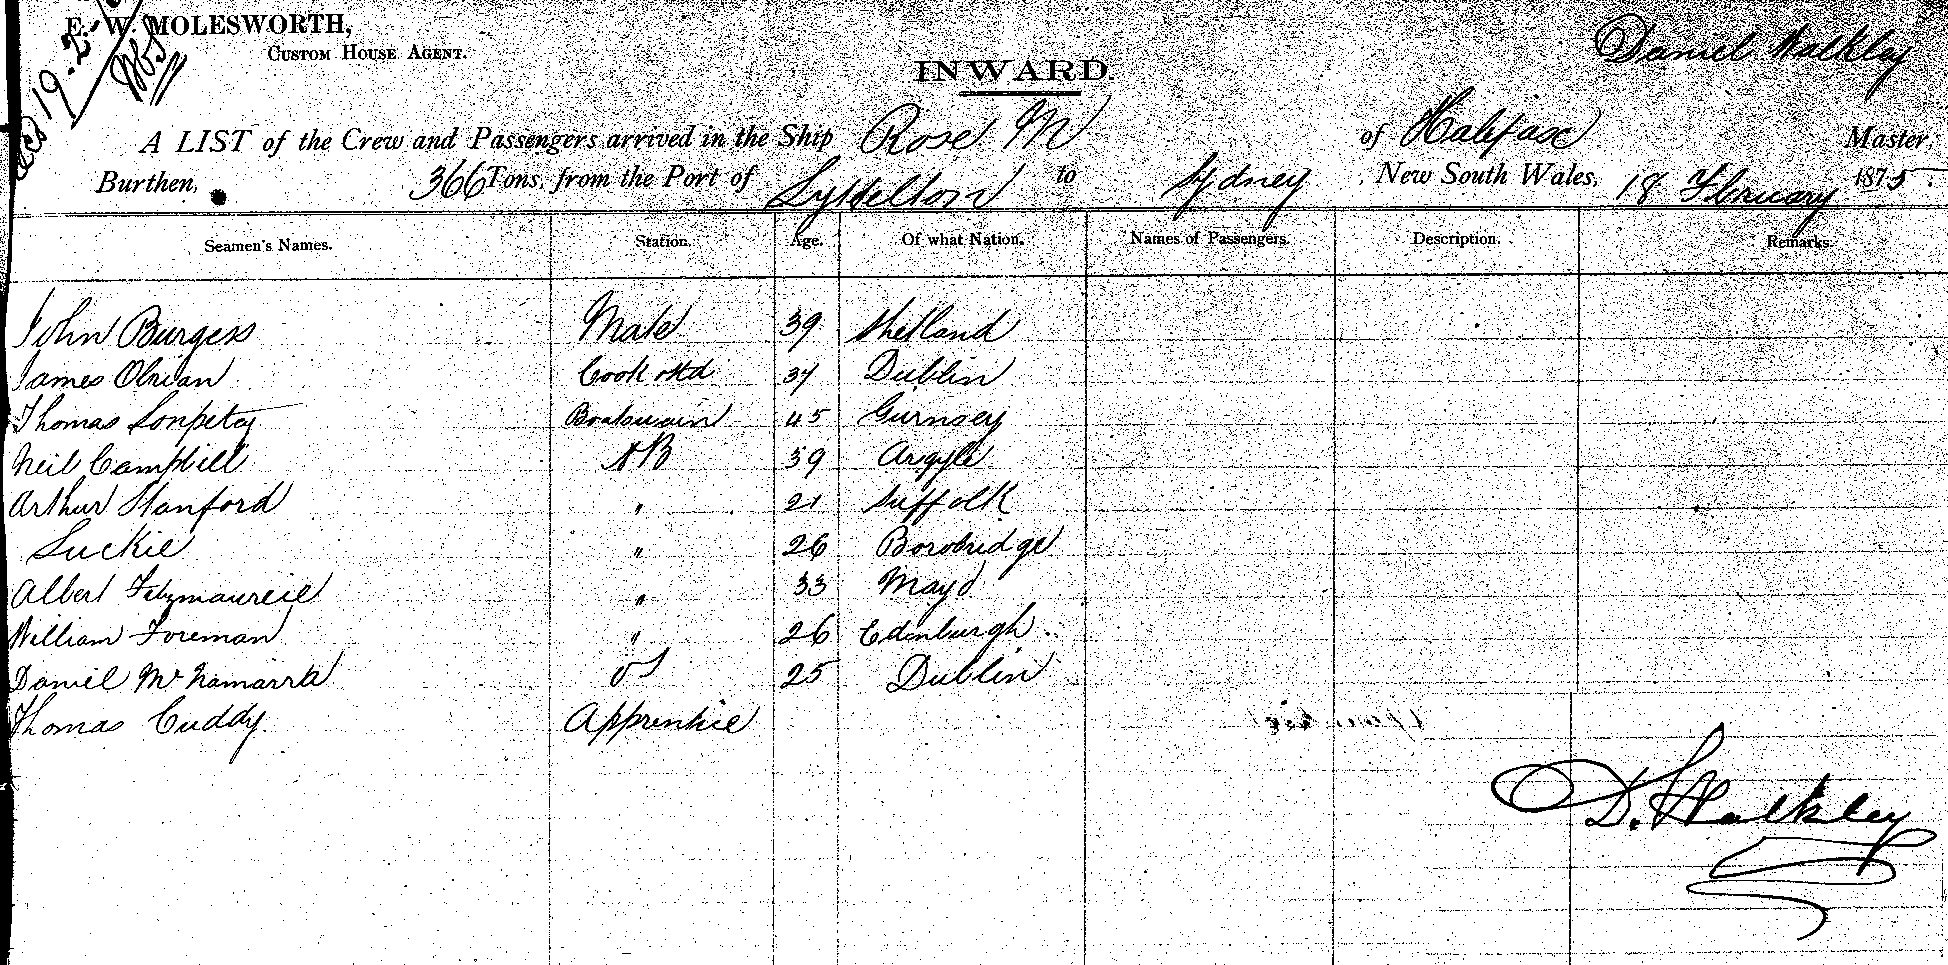 E. W. MOLESWORTH,
CUSTOM HOUSE AGENT.
19-2-
INWARD.
Daniel Walkley
A LIST of the Crew and Passengers arrived in the Ship Rose M of Halifax Master,
Burthen, 366 Tons, from the Port of Lyttelton to Sydney New South Wales, 18 February 1875.
Seamen's Names. Station. Age. Of what Nation. Names of Passengers. Description. Remarks.
John Burgess Mate 39 Shetland
James Obrian Cook Std Dublin
Thomas Boatswain 45 Gurnsey
Neil Campbell AB 39 Argyle
Arthur Stanford " 21 Suffolk
Luckie " 26 Borobridge
Albert Fitzmaureice " 33 Mayo
William Foreman " 26 Edinburgh
Daniel McNamarra OS 25 Dublin
Thomas Cuddy Apprentice
D. Walkley